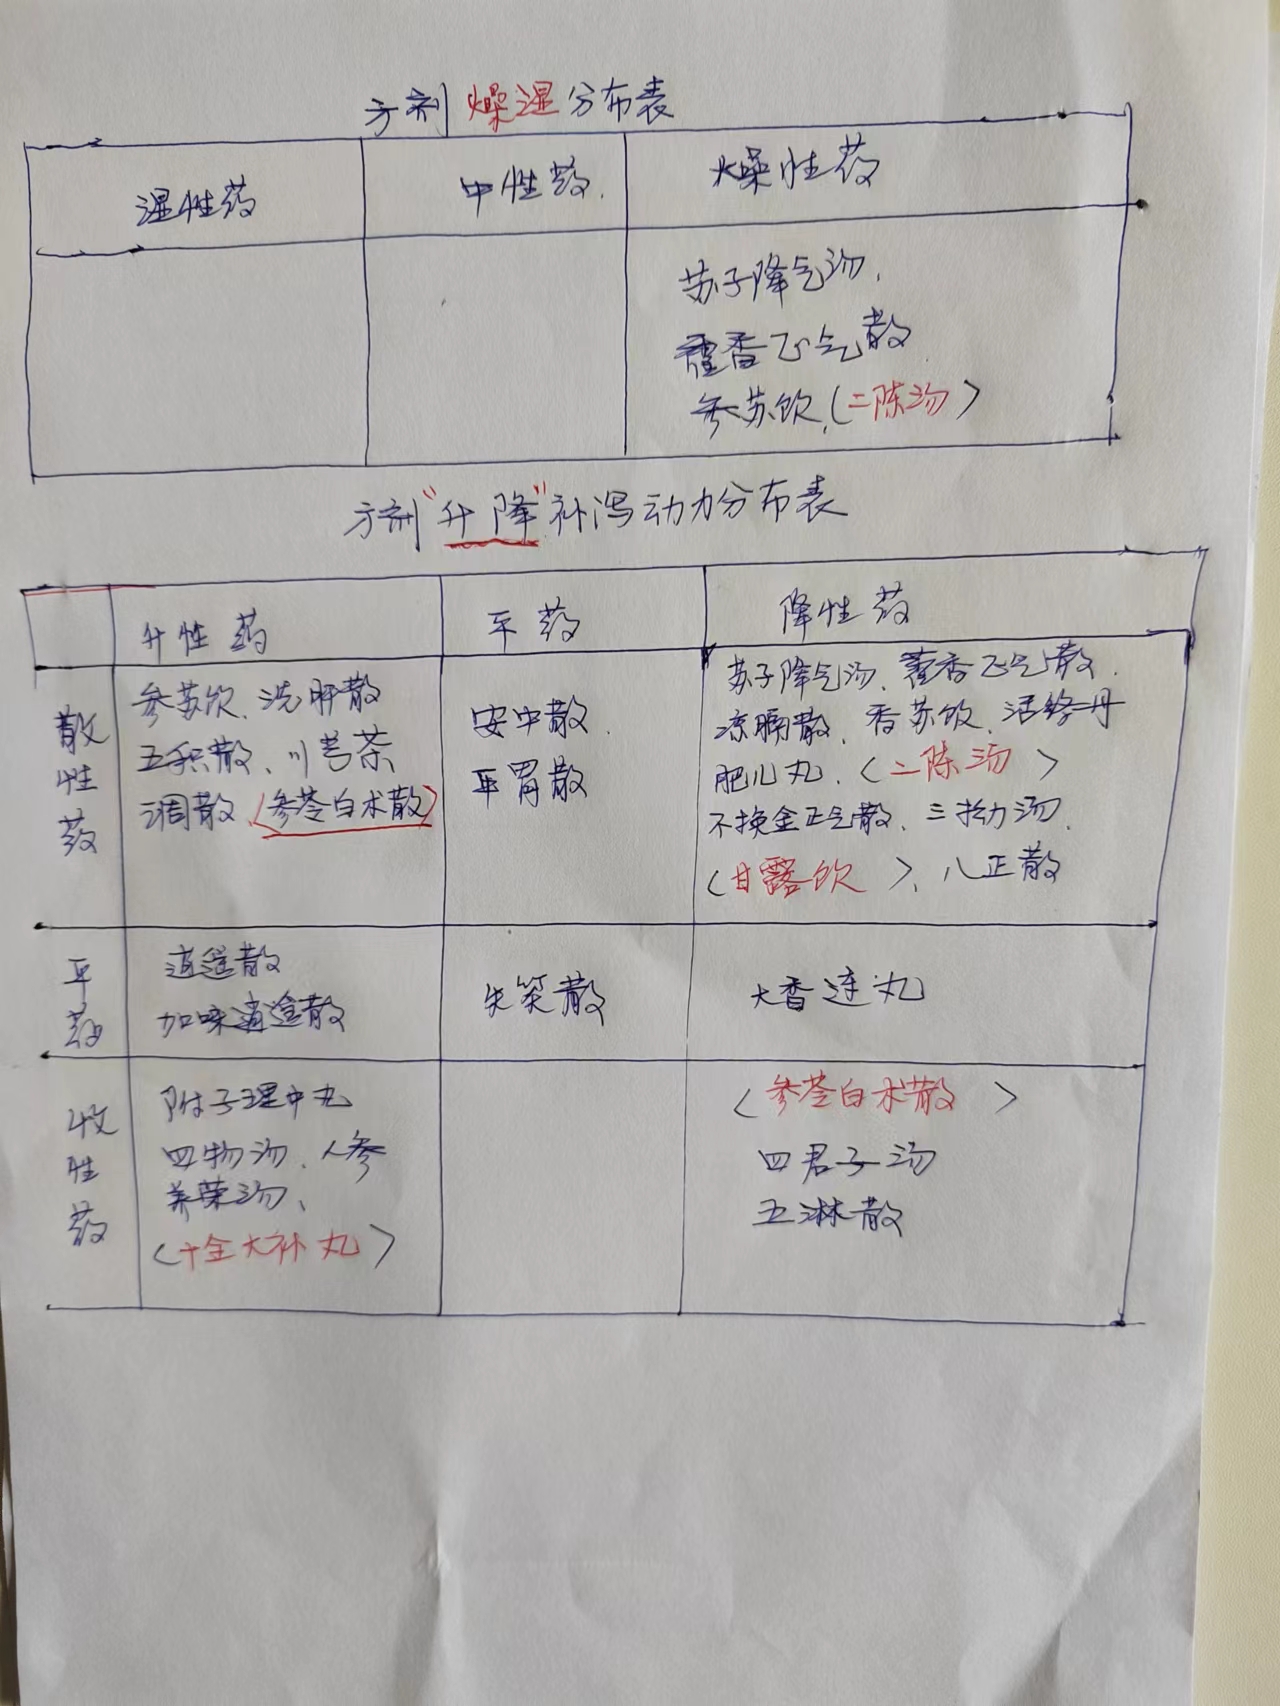 方剂燥湿分布表
湿性药
中性药.
燥性药
苏子降气汤,
藿香正气散
参苏饮,(二陈汤)
方剂“升降”补泻动力分布表
升性药
平药
降性药
散性药
参苏饮、洗肝散
五积散、川芎茶
调散(参苓白术散)
安中散
平胃散
苏子降气汤、藿香正气散.
凉膈散、香苏饮、活络丹
肥儿丸、(二陈汤)
不换金正气散、三拗汤.
(甘露饮)、八正散
平药
逍遥散
加味逍遥散
失笑散
大香连丸
收性药
附子理中丸
四物汤、人参
养荣汤、
(十全大补丸)
(参苓白术散)
四君子汤
五淋散